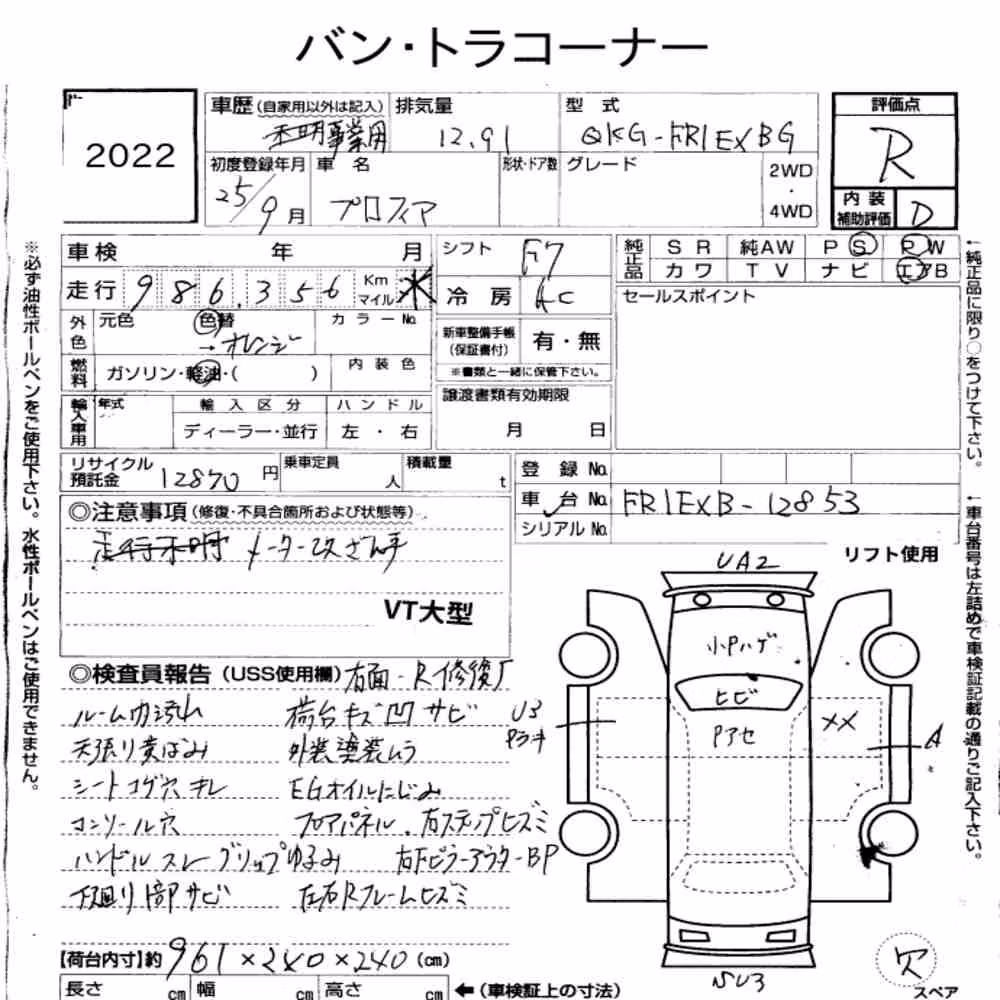 バン・トラコーナー
2022
車歴(自家用以外は記入) 不明事業用
排気量 12.91
型式 QKG-FR1EXBG
評価点 R
初度登録年月 25/9月
車名 プロフィア
形状・ドア数
グレード
2WD・4WD
内装補助評価 D
車検 年 月
シフト F7
純正品 SR 純AW PS PW
カワ TV ナビ エアB
走行 986,356 Km マイル *
冷房 AC
セールスポイント
外色 元色 色替 →オレンジ カラーNo.
新車整備手帳(保証書付) 有・無
※書類と一緒に保管下さい。
燃料 ガソリン・軽油・( )
内装色
譲渡書類有効期限 月 日
輸入車用 年式 輸入区分 ハンドル
ディーラー・並行 左・右
リサイクル預託金 12870円
乗車定員 人
積載量 t
登録No.
車台No. FR1EXB-12853
シリアルNo.
◎注意事項(修復・不具合箇所および状態等)
走行不明 メーター改ざん車
VT大型
リフト使用
◎検査員報告(USS使用欄) 右面-R修復有
ルーム内汚れ 荷台キズ凹サビ
天張り黄ばみ 外装塗装ムラ
シートコゲ穴キレ EGオイルにじみ
コンソール穴 フロアパネル.右ステップヒズミ
ハンドルスレ グリップゆるみ 右Fピラーアウター-BP
下廻り部サビ 左右Rフレームヒズミ
UA2
小Pハゲ
ヒビ
Pアセ
XX
U3
Pヌキ
A
SU3
欠
スペア
【荷台内寸】約961×240×240(cm)
長さ cm 幅 cm 高さ cm ←(車検証上の寸法)
※必ず油性ボールペンをご使用下さい。水性ボールペンはご使用できません。
←純正品に限り○をつけて下さい。
←車台番号は左詰めで車検証記載の通りご記入下さい。